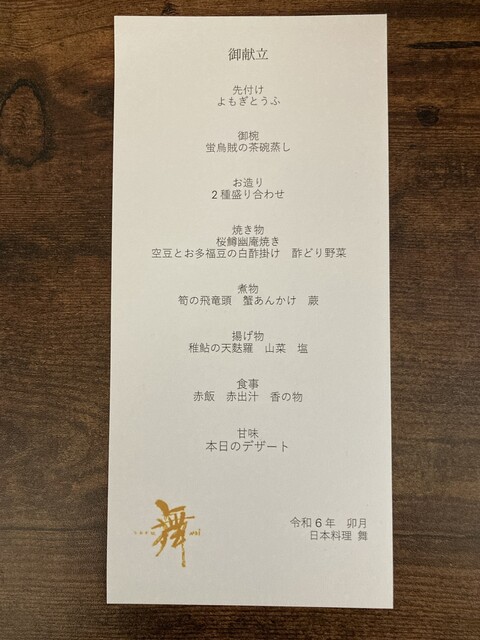 御献立
先付け
よもぎとうふ
御椀
蛍烏賊の茶碗蒸し
お造り
2種盛り合わせ
焼き物
桜鱒幽庵焼き
空豆とお多福豆の白酢掛け　酢どり野菜
煮物
筍の飛竜頭　蟹あんかけ　蕨
揚げ物
稚鮎の天麩羅　山菜　塩
食事
赤飯　赤出汁　香の物
甘味
本日のデザート
舞
令和6年　卯月
日本料理 舞